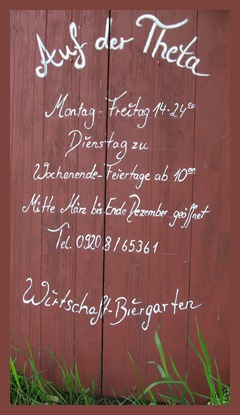 Auf der Theta
Montag-Freitag 14-24 Uhr
Dienstag zu
Wochenende-Feiertage ab 10 00
Mitte März bis Ende Dezember geöffnet
Tel. 09208/65361
Wirtschaft-Biergarten